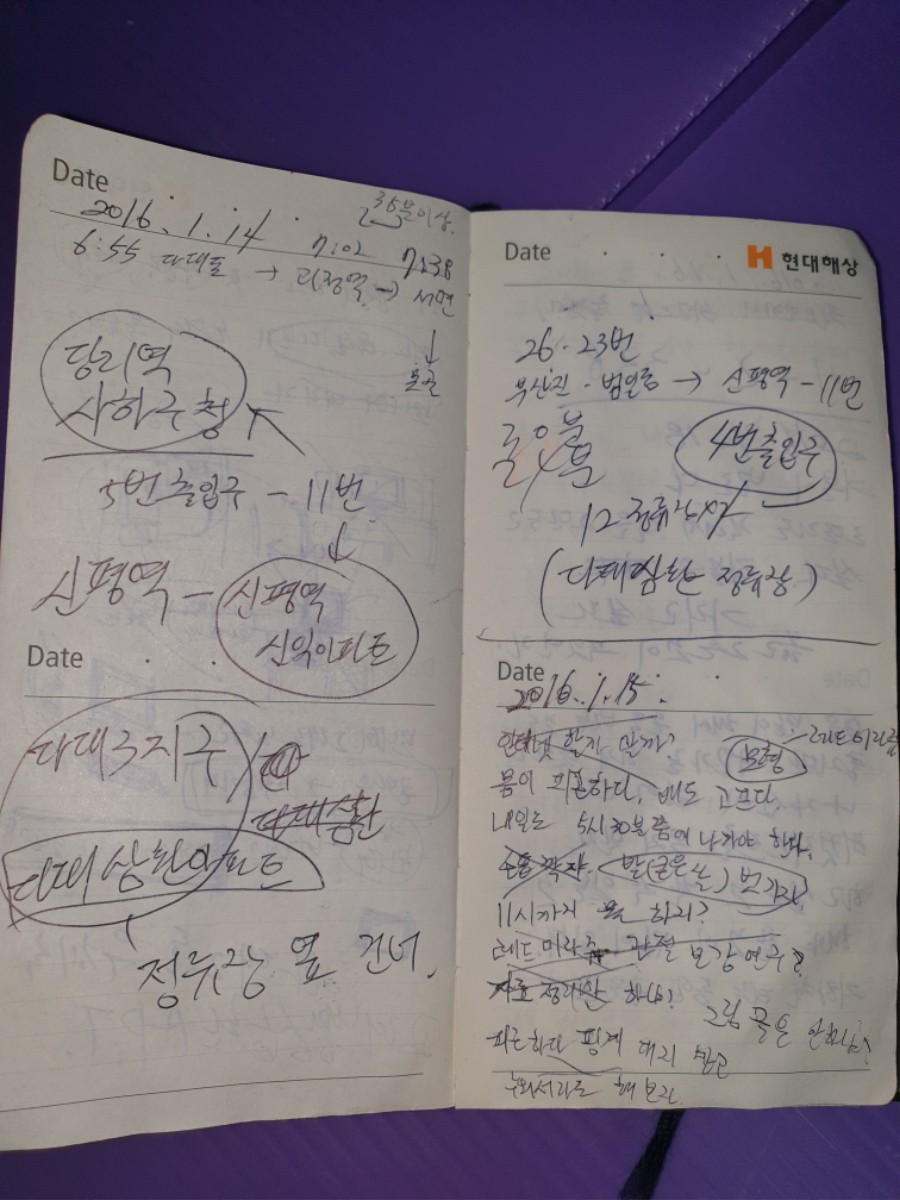 Date
2016. 1. 14
35분이상.
7:02 7:38
6:55 다대포 → 괴정역 → 서면
↓
당리역
사하구청
5번 출입구 - 11번
↓
신평역 - 신평역
신익아파트
Date
다대3지구
다대삼환
다대삼환아파트
정류장 옆 건너.
Date
현대해상
26. 23번
부산진. 범일동 → 신평역 - 11번
4번출입구
12정류장
(다대삼환 정류장)
Date
2016. 1. 15.
인터넷 할까 말까?
모형
몸이 피곤하다, 배도 고프다
내일도 5시 30분쯤에 나가야 한다.
발(굳은살) 벗기자.
11시까지 뭘 하리?
레드 미라쥬 관절 보강 연구?
자료 정리만 하나?
그림 폴은 안하나?
피곤하다 핑계 대지 말고
누워서라도 해보자.